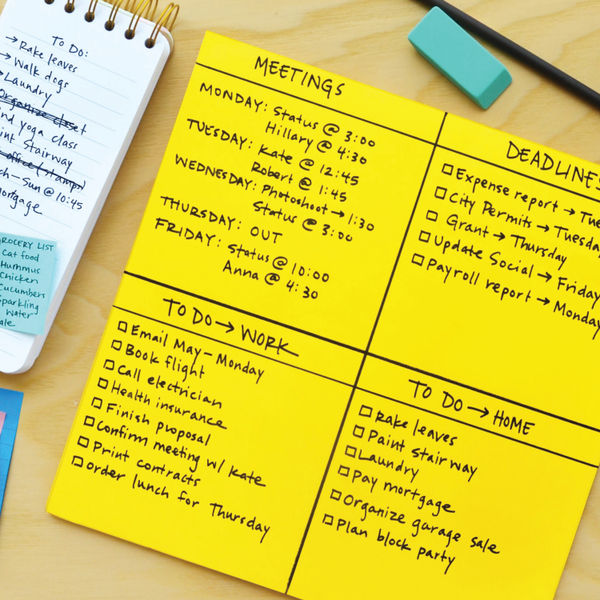 To Do:
→ Rake leaves
→ Walk dogs
→ Laundry
Organize closet
yoga class
Stairway
office (stamps)
Sun @ 10:45
GROCERY LIST
Cat food
Hummus
Chicken
Cucumbers
Sparkling
Water
MEETINGS
MONDAY: Status @ 3:00
Hillary @ 4:30
TUESDAY: Kate @ 12:45
Robert @ 1:45
WEDNESDAY: Photoshoot → 1:30
Status @ 3:00
THURSDAY: OUT
FRIDAY: Status @ 10:00
Anna @ 4:30
DEADLINES
□ Expense report → Tue
□ City Permits → Tuesda
□ Grant → Thursday
□ Update Social → Friday
□ Payroll report → Monday
TO DO → WORK
□ Email May - Monday
□ Book flight
□ Call electrician
□ Health insurance
□ Finish proposal
□ Confirm meeting w/ Kate
□ Print contracts
□ Order lunch for Thursday
TO DO → HOME
□ Rake leaves
□ Paint stairway
□ Laundry
□ Pay mortgage
□ Organize garage sale
□ Plan block party